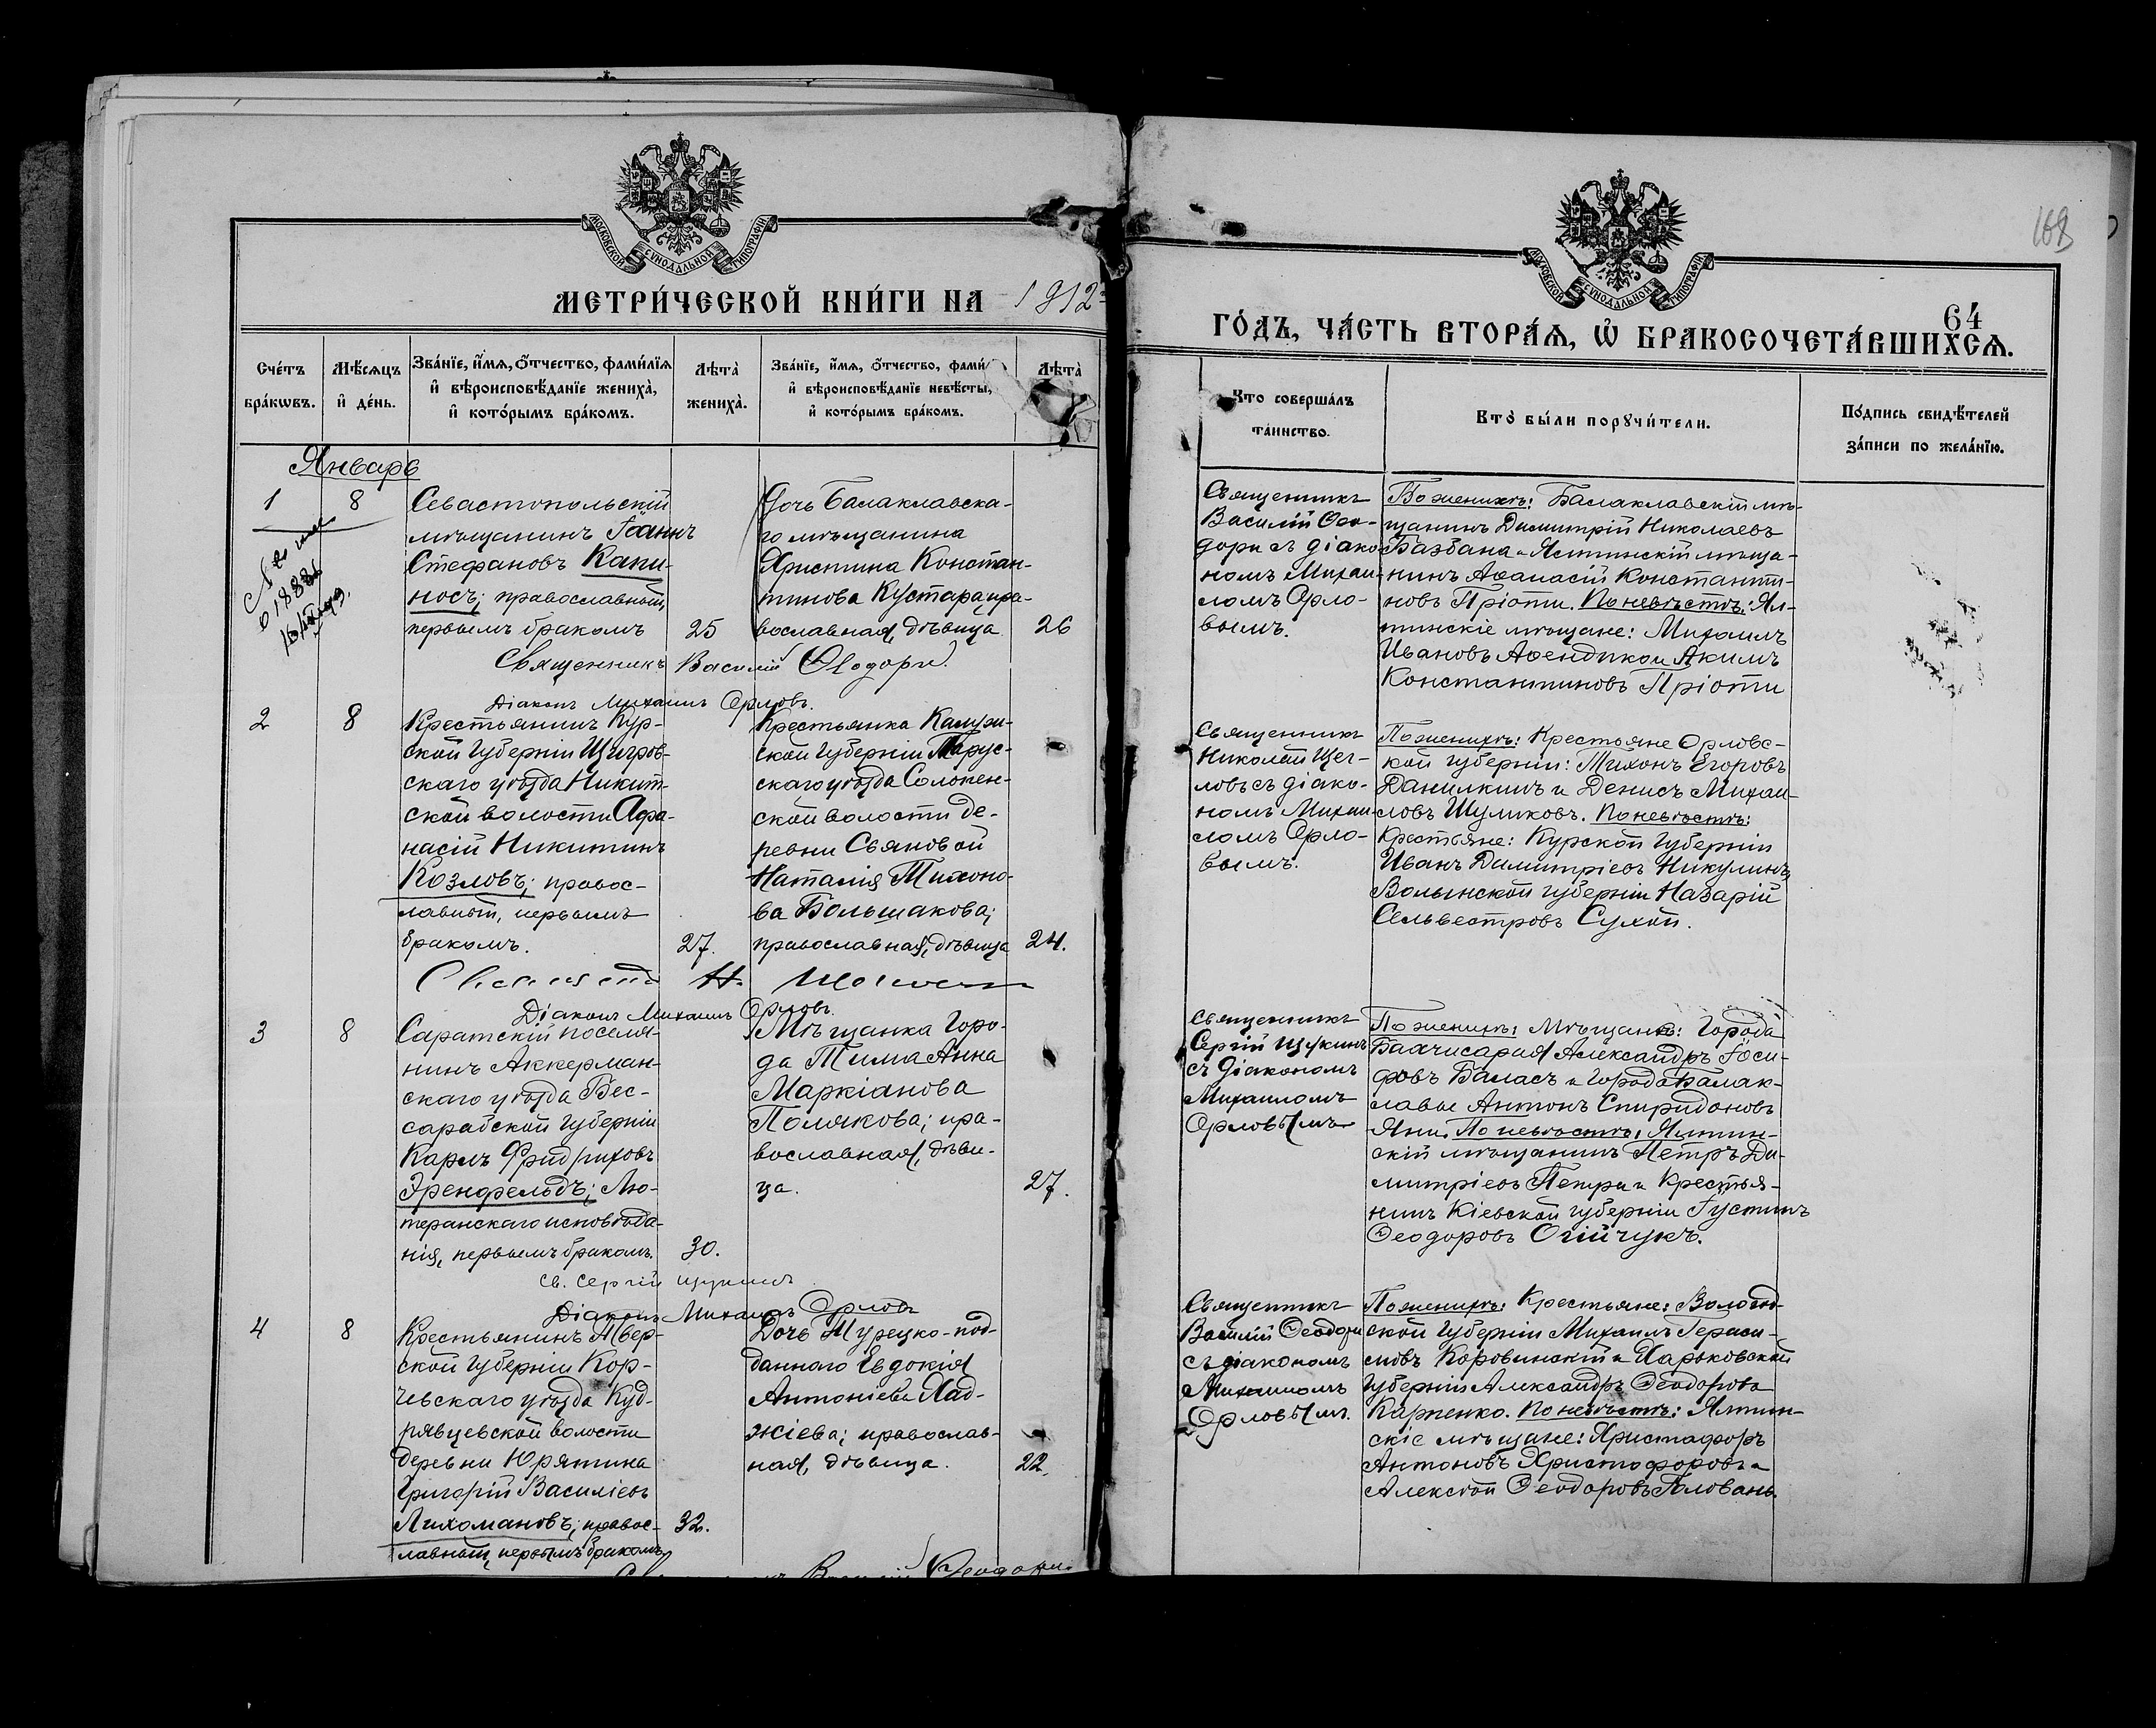 МОСКОВСКОЙ СѴНОДАЛЬНОЙ ТИПОГРАФІИ
МЕТРИ́ЧЕСКОЙ КНИ́ГИ НА 1912
Сче́тъ бра́кωвъ.
Мѣ́сяцъ и҆ де́нь.
Зва́нїе, и҆́мѧ, ѻ҆́тчество, фами́лїѧ
и҆ вѣроисповѣ́данїе жениха̀,
и҆ кото́рымъ бра́комъ.
Лѣта̀ жениха̀.
Зва́нїе, и҆́мѧ, ѻ҆́тчество, фами́
и҆ вѣроисповѣ́данїе невѣ́сты,
и҆ кото́рымъ бра́комъ.
Лѣта̀
Январь
1
8
Севастопольскій
мѣщанинъ Іоаннъ
Стефановъ Капи-
носъ; православный,
первымъ бракомъ
25
Дочь Балаклавска-
го мѣщанина
Христина Констан-
тинова Кустара, пра-
вославная, дѣвица
26
Священникъ Василій Ѳеодори.
Діаконъ Михаилъ Орловъ.
2
8
Крестьянинъ Кур-
ской губерніи Щигров-
скаго уѣзда Никит-
ской волости Афа-
насій Никитинъ
Козловъ; правос-
лавный, первымъ
бракомъ.
27.
Крестьянка Калуж-
ской губерніи Тарус-
скаго уѣзда Солопен-
ской волости де-
ревни Свяновой
Наталія Тихоно-
ва Большакова;
православная, дѣвица
24.
Діаконъ Михаилъ Орловъ.
3
8
Саратскій поселя-
нинъ Аккерман-
скаго уѣзда Бес-
сарабской губерніи
Карлъ Фридриховъ
Эренфельдъ; Лю-
теранскаго исповѣда-
нія, первымъ бракомъ.
30.
Мѣщанка горо-
да Тима Анна
Маркіанова
Полякова; пра-
вославная, дѣви-
ца.
27.
Св. Сергій Щукинъ
Діаконъ Михаилъ Орловъ
4
8
Крестьянинъ Твер-
ской губерніи Кор-
чевскаго уѣзда Куд-
рявцевской волости
деревни Юрятина
Григорій Василіевъ
Лихомановъ; правос-
лавный, первымъ бракомъ
32.
Дочь Турецко-под-
даннаго Евдокія
Антоніева Хад-
жіева; православ-
ная, дѣвица.
22.
МОСКОВСКОЙ СѴНОДАЛЬНОЙ ТИПОГРАФІИ
64
ГО́ДЪ, ЧА́СТЬ ВТОРА́Ѧ, Ѽ БРАКОСОЧЕТА́ВШИХСѦ.
Кто соверша́лъ
та́инство.
Кто̀ бы́ли порꙋчи́тели.
По́дпись свидѣ́телей
за́писи по жела́нїю.
Священникъ
Василій Ѳео-
дори съ діако-
номъ Михаи-
ломъ Орло-
вымъ.
По женихѣ: Балаклавскій мѣ-
щанинъ Димитрій Николаевъ
Базбана и Ялтинскій мѣща-
нинъ Аѳанасій Константи-
новъ Пріоти. По невѣстѣ: Ял-
тинскіе мѣщане: Михаилъ
Ивановъ Аѳендикои Якимъ
Константиновъ Пріоти
Священникъ
Николай Щег-
ловъ съ діако-
номъ Михаи-
ломъ Орло-
вымъ.
По женихѣ: Крестьяне Орловс-
кой губерніи: Тихонъ Егоровъ
Данилкинъ и Денисъ Михаи-
ловъ Шуликовъ. По невѣстѣ:
Крестьяне: Курской губерніи
Иванъ Димитріевъ Никулинъ,
Волынской губерніи Назарій
Сельвестровъ Сухой.
Священникъ
Сергій Щукинъ
съ діакономъ
Михаиломъ
Орловымъ
По женихѣ: Мѣщане: города
Бахчисарая Александръ Іоси-
фовъ Баласъ и города Балак-
лавы Антонъ Спиридоновъ
Яни. По невѣстѣ: Ялтин-
скій мѣщанинъ Петръ Ди-
митріевъ Петри и Крестья-
нинъ Кіевской губерніи Іустинъ
Ѳеодоровъ Огійчукъ.
Священникъ
Василій Ѳеодори
съ діакономъ
Михаиломъ
Орловымъ.
По женихѣ: Крестьяне: Вологод-
ской губерніи Михаилъ Гераси-
мовъ Коровинскій и Харьковской
губерніи Александръ Ѳеодоровъ
Карпенко. По невѣстѣ: Ялтин-
скіе мѣщане: Христофоръ
Антоновъ Христофоровъ и
Алексѣй Ѳеодоровъ Головань.